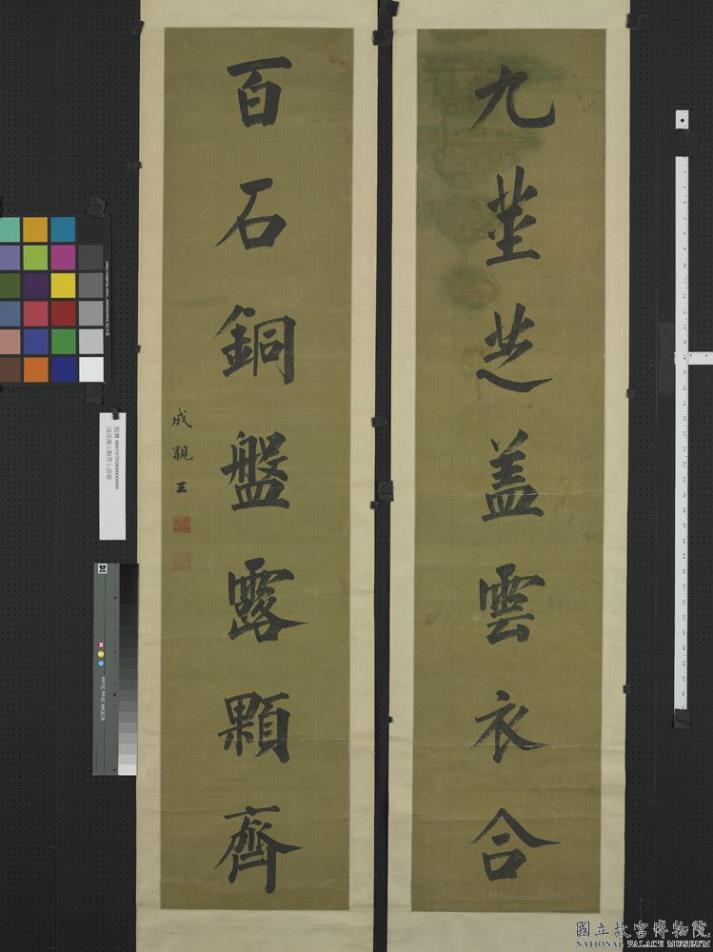 九莖芝盖雲衣合
百石銅盤露顆齊
成親王
KODAK Gray Scale
國立故宮博物院
NATIONAL PALACE MUSEUM